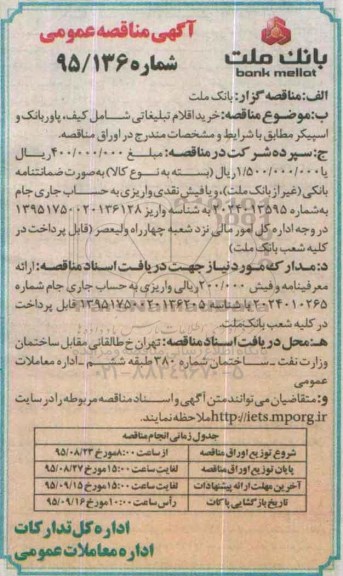 آگهی مناقصه عمومی
شماره ۹۵/۱۳۶
بانک ملت
bank mellat
الف: مناقصه گزار: بانک ملت
ب: موضوع مناقصه: خرید اقلام تبلیغاتی شامل کیف، پاوربانک و
اسپیکر مطابق با شرایط و مشخصات مندرج در اوراق مناقصه.
ج: سپرده شرکت در مناقصه: مبلغ ۴۰۰/۰۰۰/۰۰۰ ریال
یا ۱/۵۰۰/۰۰۰/۰۰۰ ریال (بسته به نوع کالا) به‌صورت ضمانتنامه
بانکی (غیر از بانک ملت)، و یا فیش نقدی واریزی به حساب جاری جام
به شماره
به شناسه واریز ۱۳۹۵۱۷۵۰۰۲۰۱۳۶۱۲۸
در وجه اداره کل امور مالی نزد شعبه چهارراه ولیعصر (قابل پرداخت در
کلیه شعب بانک ملت)
د: مدارک مورد نیاز جهت دریافت اسناد مناقصه: ارائه
معرفینامه و فیش ۲۰۰/۰۰۰ ریالی واریزی به حساب جاری جام شماره
۲۰۲۴۰۱۰۲۶۵ با شناسه ۱۳۹۵۱۷۵۰۰۲۰۱۳۶۲۰۵ قابل پرداخت
در کلیه شعب بانک ملت.
هـ: محل دریافت اسناد مناقصه: تهران خ طالقانی مقابل ساختمان
وزارت نفت ـ ساختمان شماره ۳۸۰ طبقه ششم ـ اداره معاملات
عمومی
و: متقاضیان می‌توانند متن آگهی و اسناد مناقصه مربوطه را در سایت
http://iets.mporg.ir ملاحظه نمایند.
جدول زمانی انجام مناقصه
شروع توزیع اوراق مناقصه از ساعت ۸:۰۰ مورخ ۹۵/۰۸/۲۳
پایان توزیع اوراق مناقصه لغایت ساعت ۱۵:۰۰ مورخ ۹۵/۰۸/۲۷
آخرین مهلت ارائه پیشنهادات لغایت ساعت ۱۵:۰۰ مورخ ۹۵/۰۹/۱۵
تاریخ بازگشایی پاکات رأس ساعت ۱۰:۰۰ مورخ ۹۵/۰۹/۱۶
اداره کل تدارکات
اداره معاملات عمومی